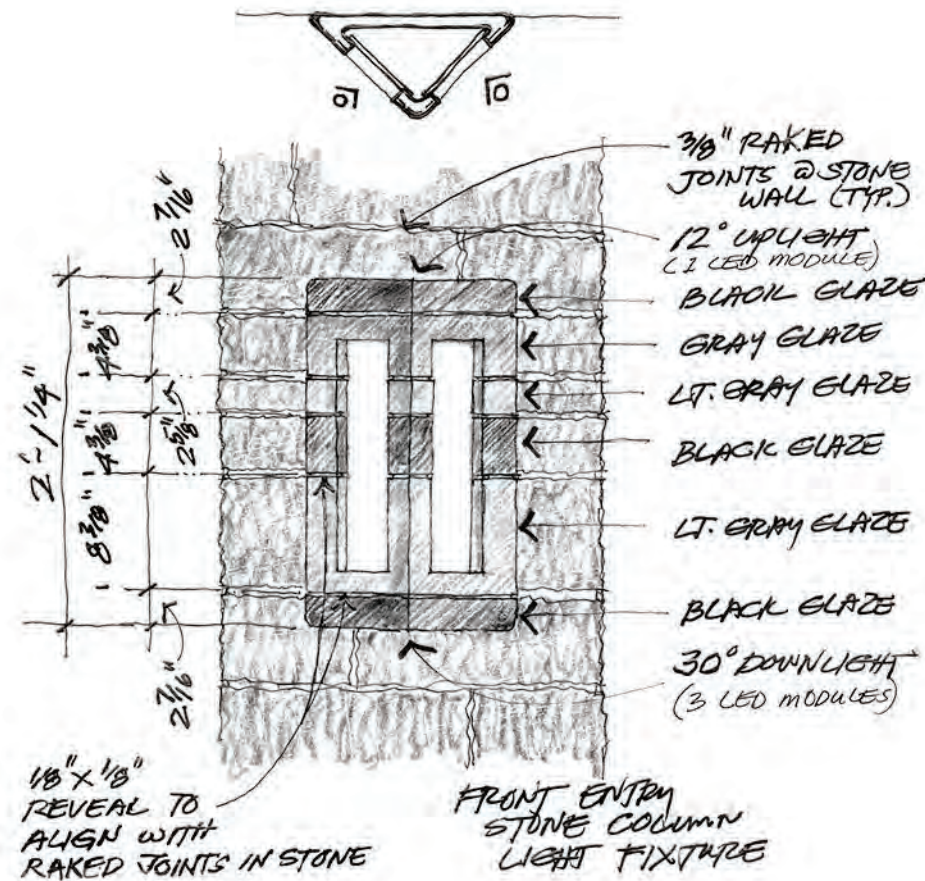 3/8" RAKED
JOINTS @ STONE
WALL (TYP.)
12° UPLIGHT
(1 LED MODULE)
BLACK GLAZE
GRAY GLAZE
LT. GRAY GLAZE
BLACK GLAZE
LT. GRAY GLAZE
BLACK GLAZE
30° DOWNLIGHT
(3 LED MODULES)
2'~1 1/4"
2 7/16"
4 3/8"
2 5/8"
4 3/8"
8 7/8"
2 7/16"
1/8" X 1/8"
REVEAL TO
ALIGN WITH
RAKED JOINTS IN STONE
FRONT ENTRY
STONE COLUMN
LIGHT FIXTURE